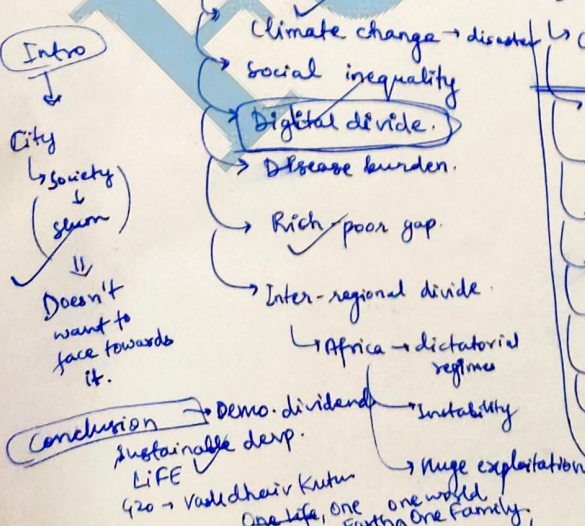 Intro
City
Society
slum
Doesn't
want to
face towards
it.
Climate change → disaster
Social inequality
Digital divide.
Disease burden.
Rich-poor gap.
Inter-regional divide.
Africa → dictatorial
regimes
Instability
Huge exploitation
Conclusion → Demo. dividend
Sustainable devp.
LiFE
G20 → Vasudhaiv Kutum
One Life, One one world
Earth One Family.